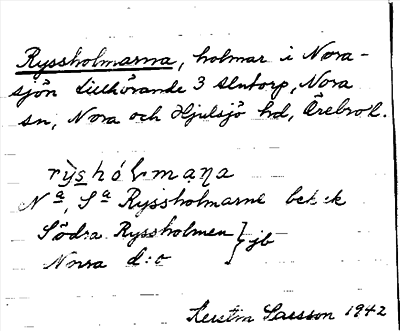 Ryssholmarna, holmar i Nora-
sjön tillhörande 3 Slutorp, Nora
sn, Nora och Hjulsjö hd, Örebro l.
rỳshólmaṇa
Na, Sa Ryssholmarne bet. ek
Södra Ryssholmen } jb
Norra d:o
Kerstin Larsson 1942